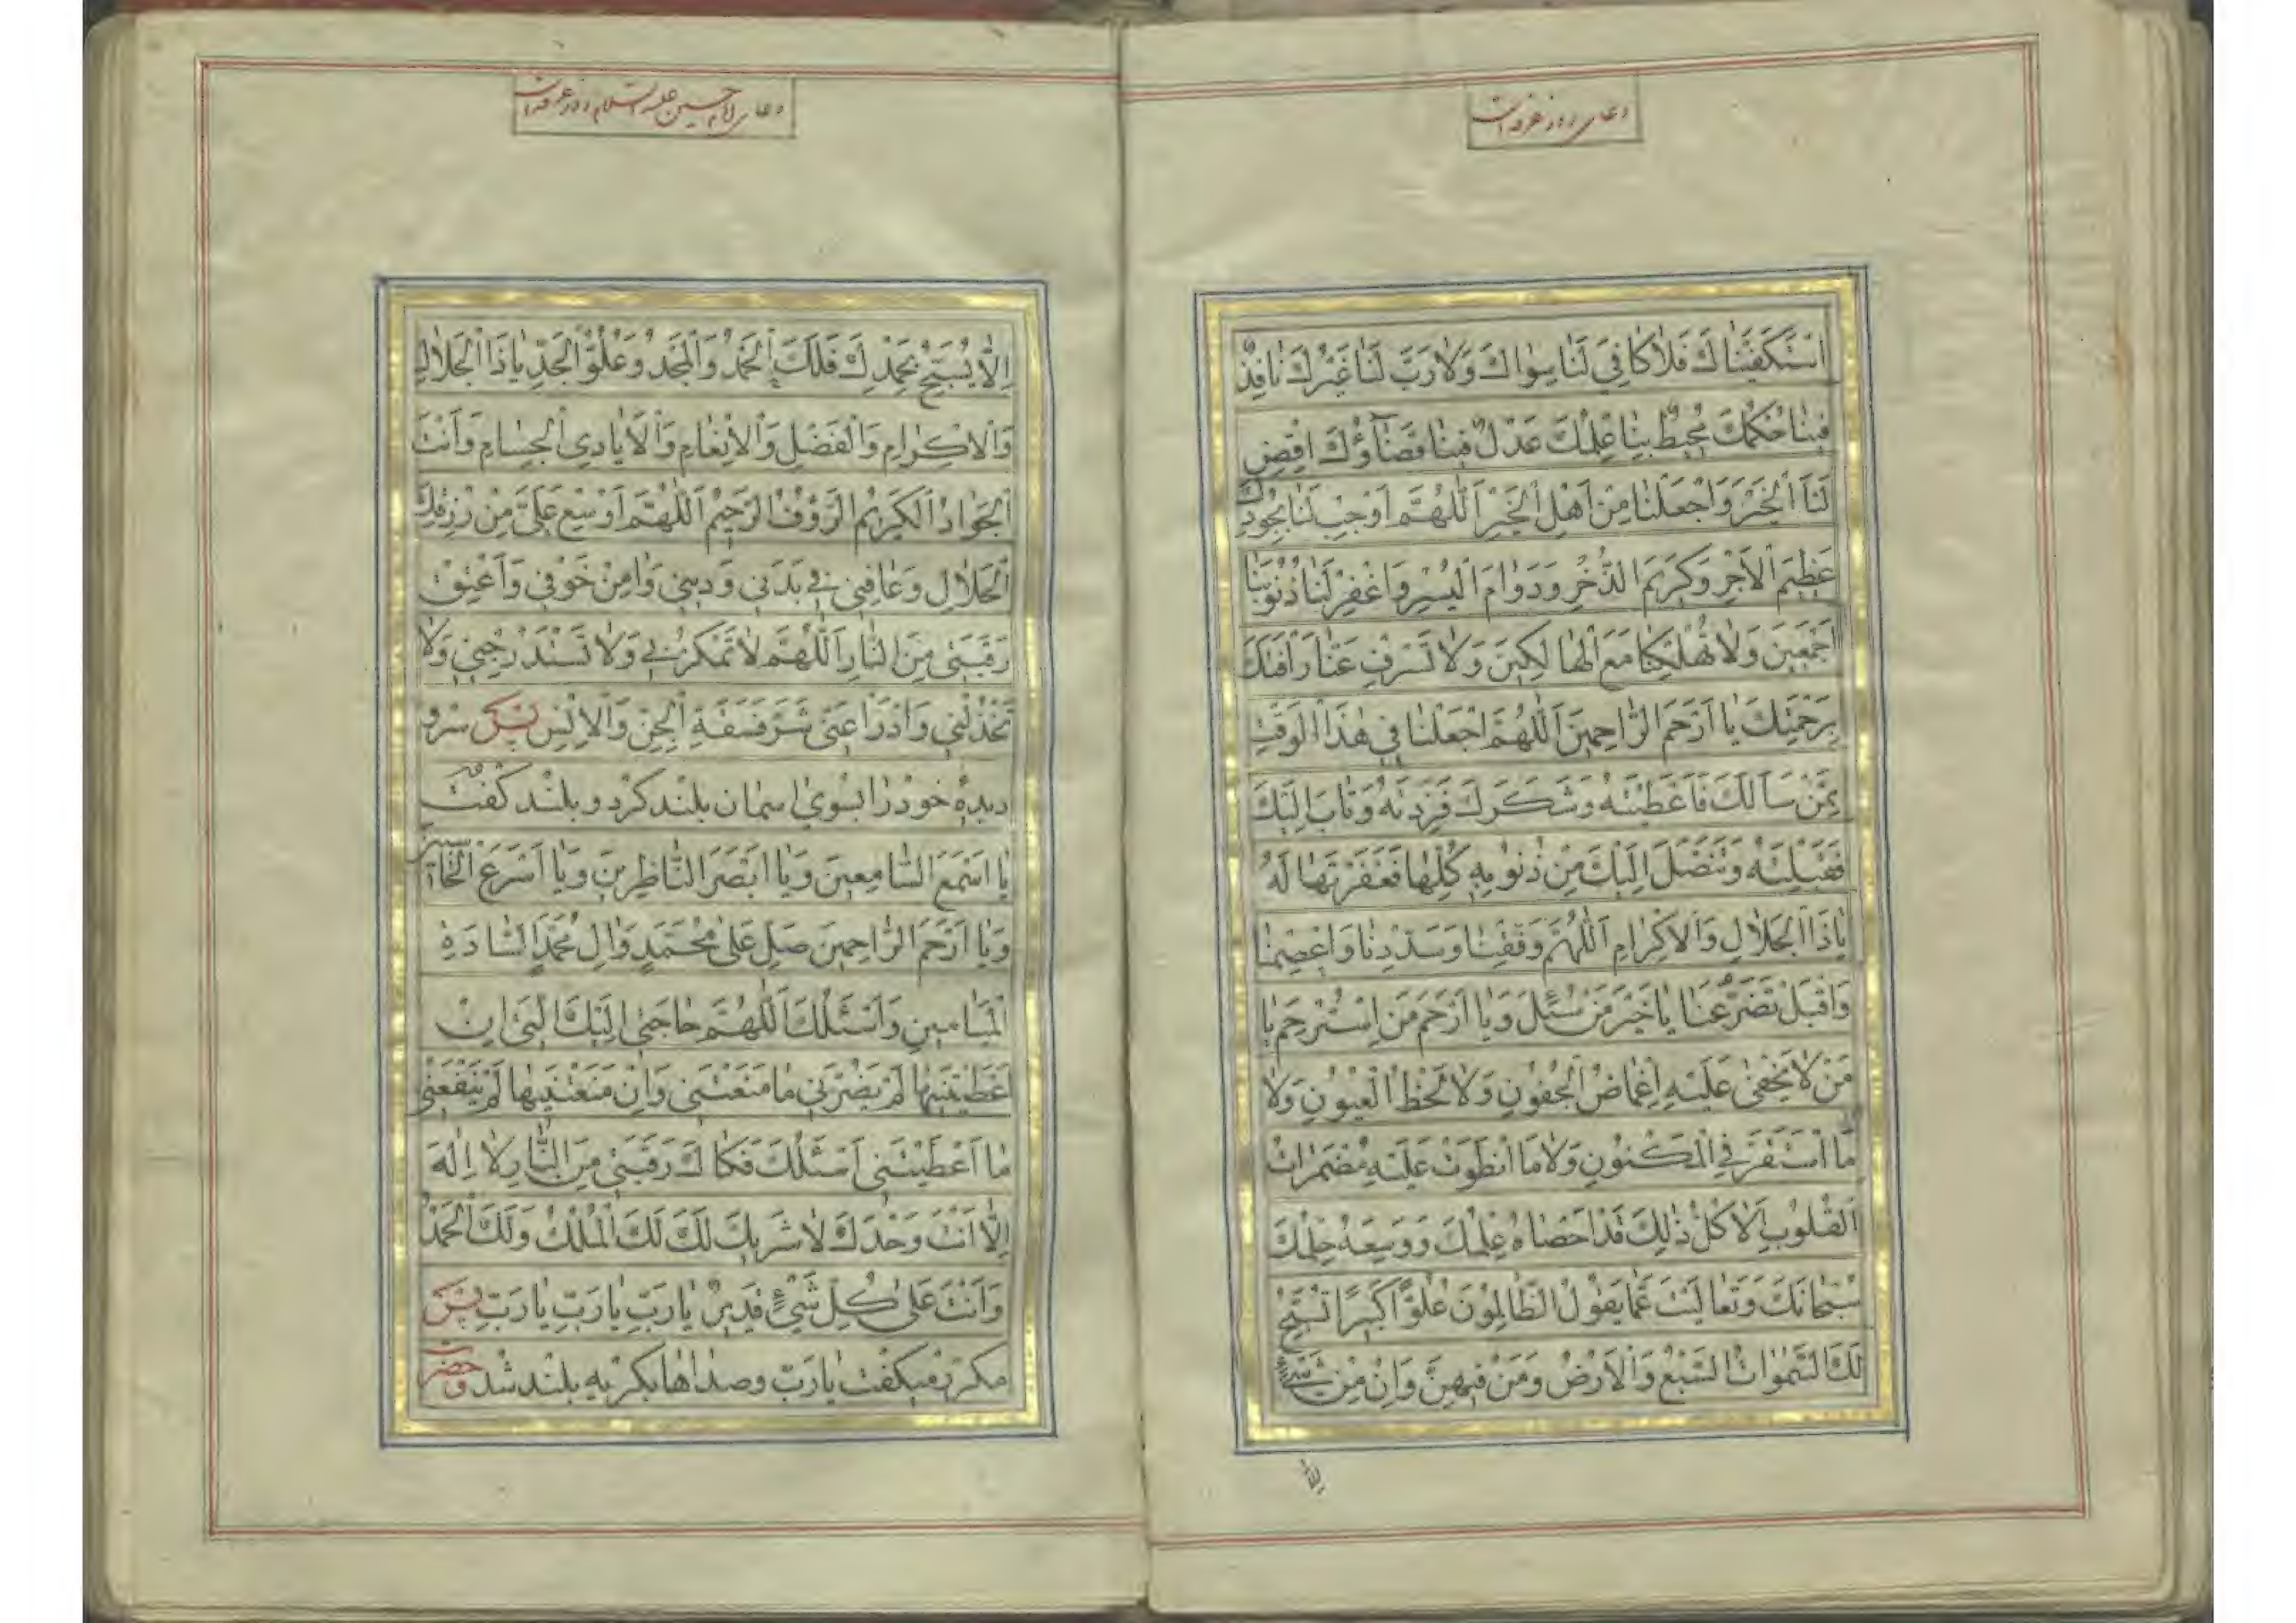 دعای روز عرفه است
اسْتَكْفَيْنَاكَ فَلَا كَافِيَ لَنَا سِوَاكَ وَلَا رَبَّ لَنَا غَيْرُكَ نَافِذٌ
فِينَا حُكْمُكَ مُحِيطٌ بِنَا عِلْمُكَ عَدْلٌ فِينَا قَضَآؤُكَ اِقْضِ
لَنَا الْخَيْرَ وَاجْعَلْنَا مِنْ اَهْلِ الْخَيْرِ اَللّٰهُمَّ اَوْجِبْ لَنَا بِجُودِكَ
عَظِيمَ الْاَجْرِ وَكَرِيمَ الذُّخْرِ وَدَوَامَ الْيُسْرِ وَاغْفِرْ لَنَا ذُنُوبَنَا
اَجْمَعِينَ وَلَا تُهْلِكْنَا مَعَ الْهَالِكِينَ وَلَا تَسْرِفْ عَنَّا رَاْفَتَكَ
بِرَحْمَتِكَ يَا اَرْحَمَ الرَّاحِمِينَ اَللّٰهُمَّ اجْعَلْنَا فِي هٰذَا الْوَقْتِ
مِمَّنْ سَاَلَكَ فَاَعْطَيْتَهُ وَشَكَرَكَ فَزِدْتَهُ وَتَابَ اِلَيْكَ
فَقَبِلْتَهُ وَتَنَصَّلَ اِلَيْكَ مِنْ ذُنُوبِهِ كُلِّهَا فَغَفَرْتَهَا لَهُ
يَا ذَا الْجَلَالِ وَالْاِكْرَامِ اَللّٰهُمَّ وَفِّقْنَا وَسَدِّدْنَا وَاعْصِمْنَا
وَاقْبَلْ تَضَرُّعَنَا يَا خَيْرَ مَنْ سُئِلَ وَيَا اَرْحَمَ مَنِ اسْتُرْحِمَ يَا
مَنْ لَا يَخْفٰى عَلَيْهِ اِغْمَاضُ الْجُفُونِ وَلَا لَحْظُ الْعُيُونِ وَلَا
مَا اسْتَقَرَّ فِي الْمَكْنُونِ وَلَا مَا انْطَوَتْ عَلَيْهِ مُضْمَرَاتُ
الْقُلُوبِ اَلَا كُلُّ ذٰلِكَ قَدْ اَحْصَاهُ عِلْمُكَ وَوَسِعَهُ حِلْمُكَ
سُبْحَانَكَ وَتَعَالَيْتَ عَمَّا يَقُولُ الظَّالِمُونَ عُلُوًّا كَبِيرًا تُسَبِّحُ
لَكَ السَّمٰوَاتُ السَّبْعُ وَالْاَرْضُ وَمَنْ فِيهِنَّ وَاِنْ مِنْ شَيْءٍ
الا
دعای امام حسین علیه السلام روز عرفه است
اِلَّا يُسَبِّحُ بِحَمْدِكَ فَلَكَ الْحَمْدُ وَالْمَجْدُ وَعُلُوُّ الْجَدِّ يَا ذَا الْجَلَالِ
وَالْاِكْرَامِ وَالْفَضْلِ وَالْاِنْعَامِ وَالْاَيَادِي الْجِسَامِ وَاَنْتَ
الْجَوَادُ الْكَرِيمُ الرَّؤُوفُ الرَّحِيمُ اَللّٰهُمَّ اَوْسِعْ عَلَيَّ مِنْ رِزْقِكَ
الْحَلَالِ وَعَافِنِي فِي بَدَنِي وَدِينِي وَاٰمِنْ خَوْفِي وَاَعْتِقْ
رَقَبَتِي مِنَ النَّارِ اَللّٰهُمَّ لَا تَمْكُرْ بِي وَلَا تَسْتَدْرِجْنِي وَلَا
تَخْذُلْنِي وَادْرَاْ عَنِّي شَرَّ فَسَقَةِ الْجِنِّ وَالْاِنْسِ پس سر و
دیده خود را بسوی اسمان بلند کرد و بلند گفت
يَا اَسْمَعَ السَّامِعِينَ وَيَا اَبْصَرَ النَّاظِرِينَ وَيَا اَسْرَعَ الْحَاسِبِينَ
وَيَا اَرْحَمَ الرَّاحِمِينَ صَلِّ عَلٰى مُحَمَّدٍ وَاٰلِ مُحَمَّدٍ السَّادَةِ
الْمَيَامِينِ وَاَسْئَلُكَ اَللّٰهُمَّ حَاجَتِي اِلَيْكَ الَّتِي اِنْ
اَعْطَيْتَنِيهَا لَمْ يَضُرَّنِي مَا مَنَعْتَنِي وَاِنْ مَنَعْتَنِيهَا لَمْ يَنْفَعْنِي
مَا اَعْطَيْتَنِي اَسْئَلُكَ فَكَاكَ رَقَبَتِي مِنَ النَّارِ لَا اِلٰهَ
اِلَّا اَنْتَ وَحْدَكَ لَا شَرِيكَ لَكَ لَكَ الْمُلْكُ وَلَكَ الْحَمْدُ
وَاَنْتَ عَلٰى كُلِّ شَيْءٍ قَدِيرٌ يَا رَبِّ يَا رَبِّ يَا رَبِّ پس
مکرر میگفت یا رب و صداها بگریه بلند شد و حضرت